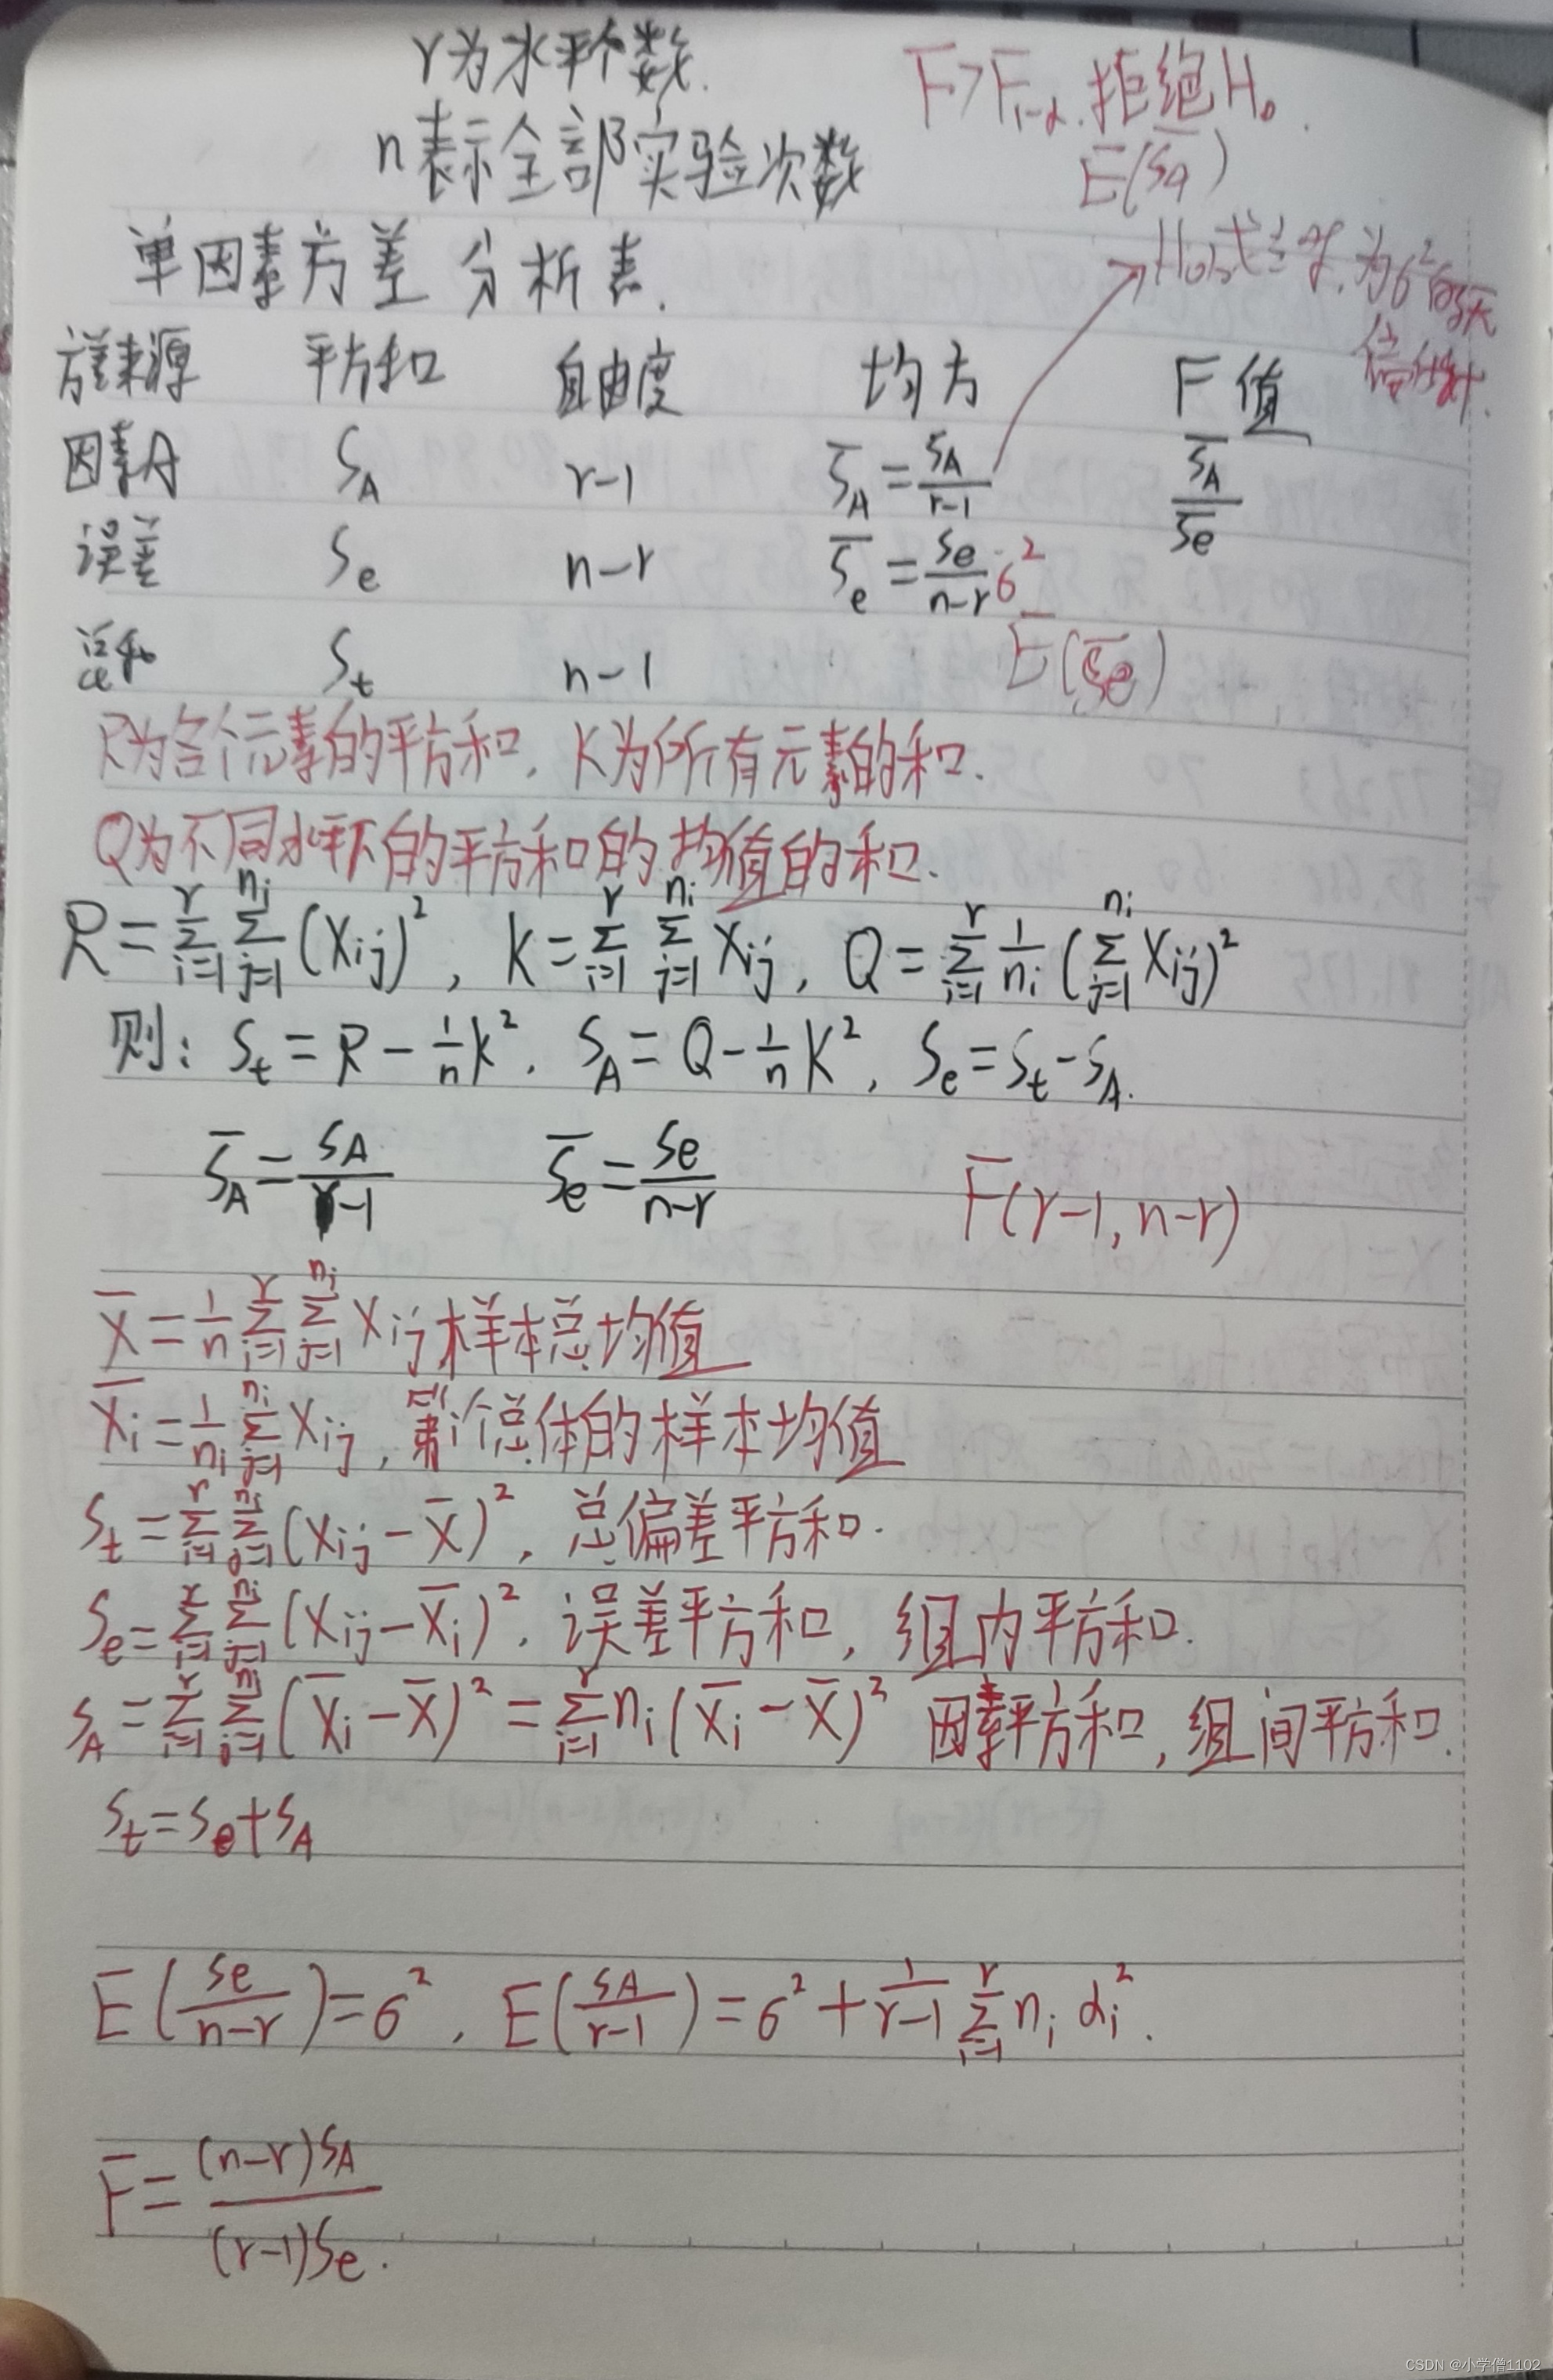 r为水平个数.
F>F₁₋α.拒绝H₀.
n表示全部实验次数
E(S̅A)
单因素方差分析表.
H₀成立时,为σ²的无
偏估计.
方差来源 平方和 自由度 均方 F值
因素A S_A r-1 S̅_A=S_A/(r-1) S̅_A/S̅e
误差 S_e n-r S̅_e=Se/(n-r) σ²
总和 S_t n-1 E(S̅e)
R为各个元素的平方和, K为所有元素的和.
Q为不同水平下的平方和的均值的和.
R=∑_{i=1}^{r}∑_{j=1}^{nj}(Xij)², K=∑_{i=1}^{r}∑_{j=1}^{ni}Xij, Q=∑_{i=1}^{r}1/ni(∑_{j=1}^{ni}Xij)²
则: S_t=R-1/n K². S_A=Q-1/n K², S_e=S_t-S_A.
S̅_A=S_A/(r-1) S̅e=Se/(n-r) F(r-1,n-r)
X̅=1/n∑_{i=1}^{r}∑_{j=1}^{nj}Xij样本总均值
X̅i=1/ni∑_{j=1}^{ni}Xij, 第i个总体的样本均值
S_t=∑_{i=1}^{r}∑_{j=1}^{ni}(Xij-X̅)², 总偏差平方和.
S_e=∑_{i=1}^{r}∑_{j=1}^{ni}(Xij-X̅i)², 误差平方和, 组内平方和.
S_A=∑_{i=1}^{r}∑_{j=1}^{ni}(X̅i-X̅)²=∑_{i=1}^{r}ni(X̅i-X̅)² 因素平方和, 组间平方和.
S_t=S_e+S_A
E(Se/(n-r))=σ², E(S_A/(r-1))=σ²+1/(r-1)∑_{i=1}^{r}ni αi².
F=(n-r)S_A/(r-1)Se.
CSDN @小学僧1102